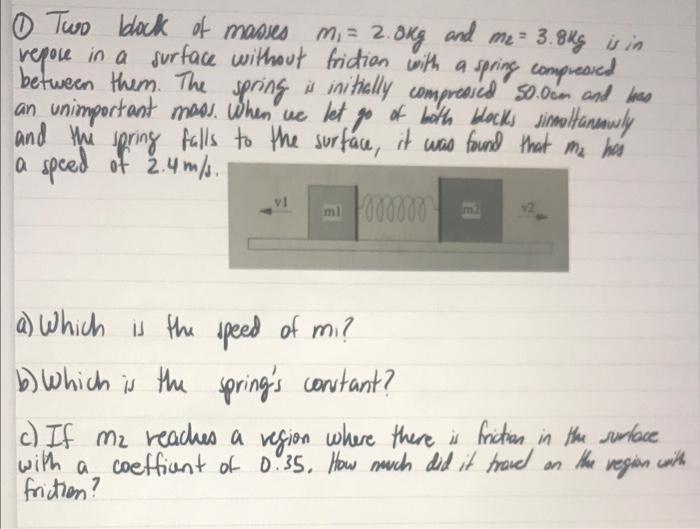 ① Two block of masses m1 = 2.0kg and m2 = 3.8kg is in
repose in a surface without friction with a spring compressed
between them. The spring is initially compressed 50.0cm and has
an unimportant mass. When we let go of both blocks simultaneously
and the spring falls to the surface, it was found that m2 has
a speed of 2.4 m/s.
v1 m1 m2 v2
a) Which is the speed of m1?
b) Which is the spring's constant?
c) If m2 reaches a region where there is friction in the surface
with a coeffiant of 0.35. How much did it travel on the region with
friction?